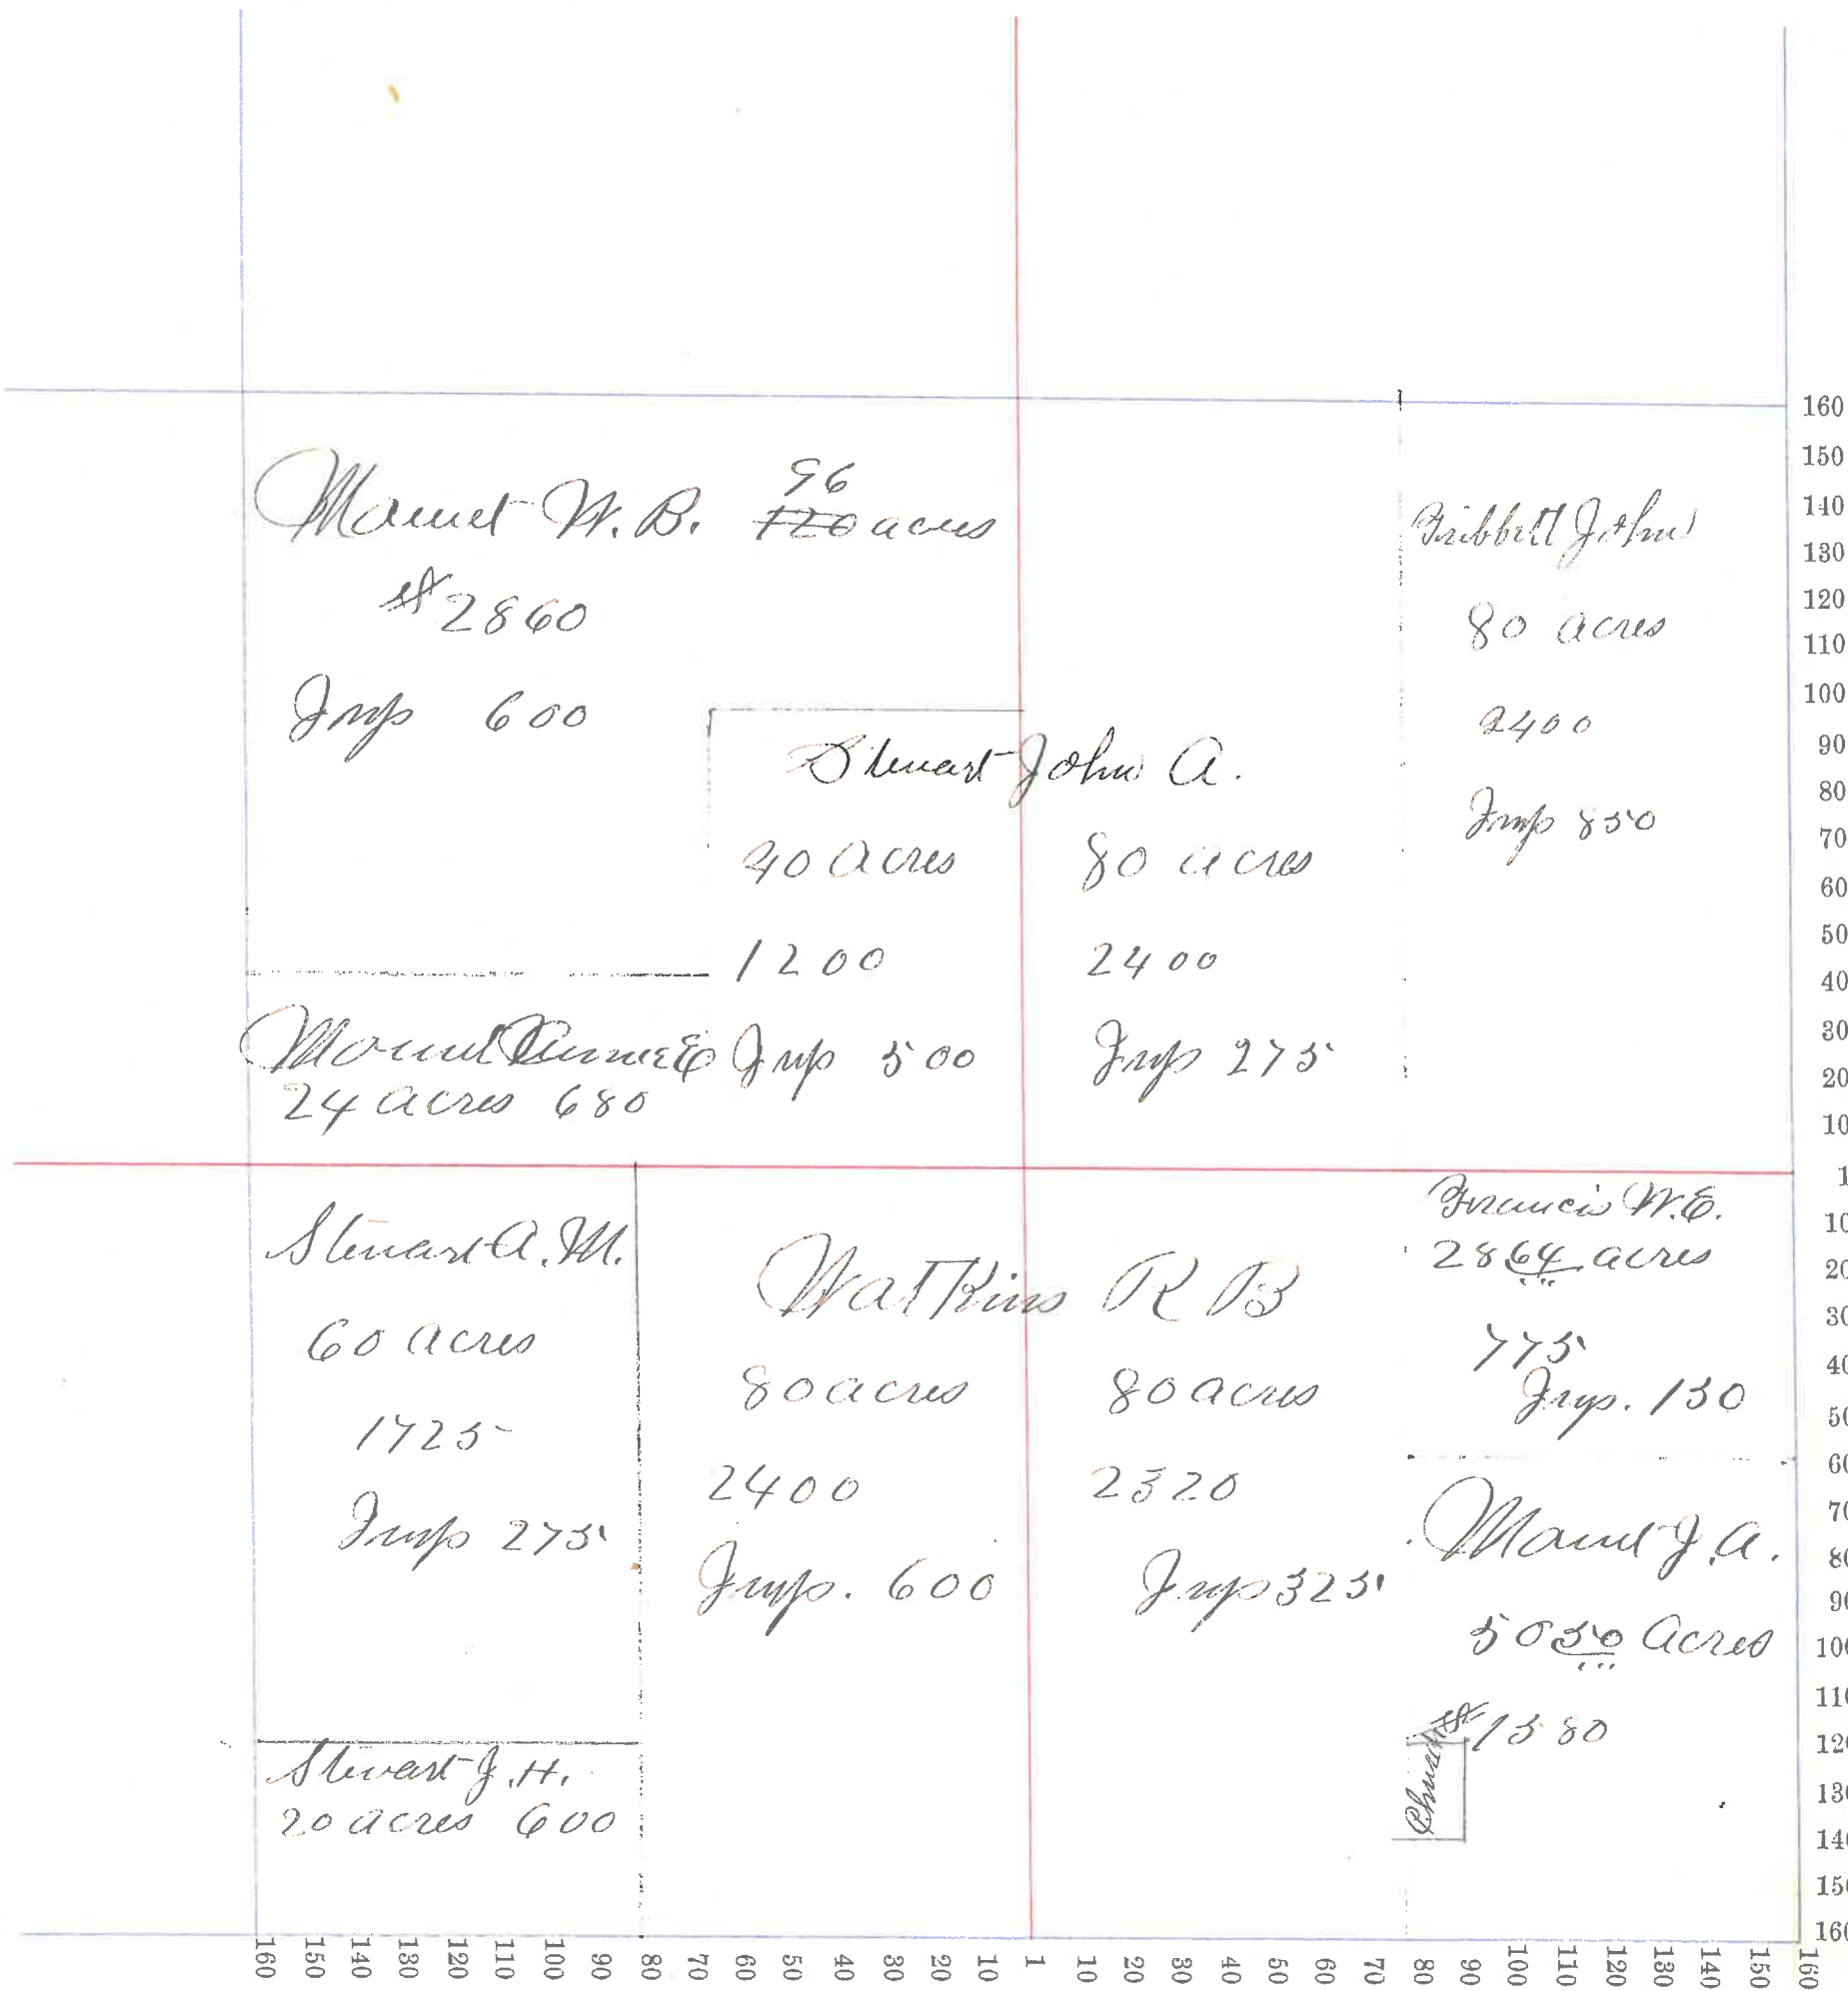 96
Mount W. B. 120 acres
$2860
Imp 600
Tribbett John
80 acres
2400
Imp 850
Stewart John A.
40 acres
1200
Imp 500
80 acres
2400
Imp 275
Mount E
24 acres 680
Stewart A. M.
60 acres
1725
Imp 275
Stewart J. H.
20 acres 600
Watkins R B
80 acres
2400
Imp. 600
80 acres
2320
Imp 325
Francis W. E.
28 64 acres
775
Imp. 150
Mount J. A.
50 50 acres
$1580
Church
160
150
140
130
120
110
100
90
80
70
60
50
40
30
20
10
1
10
20
30
40
50
60
70
80
90
100
110
120
130
140
150
160
160 150 140 130 120 110 100 90 80 70 60 50 40 30 20 10 1 10 20 30 40 50 60 70 80 90 100 110 120 130 140 150 160